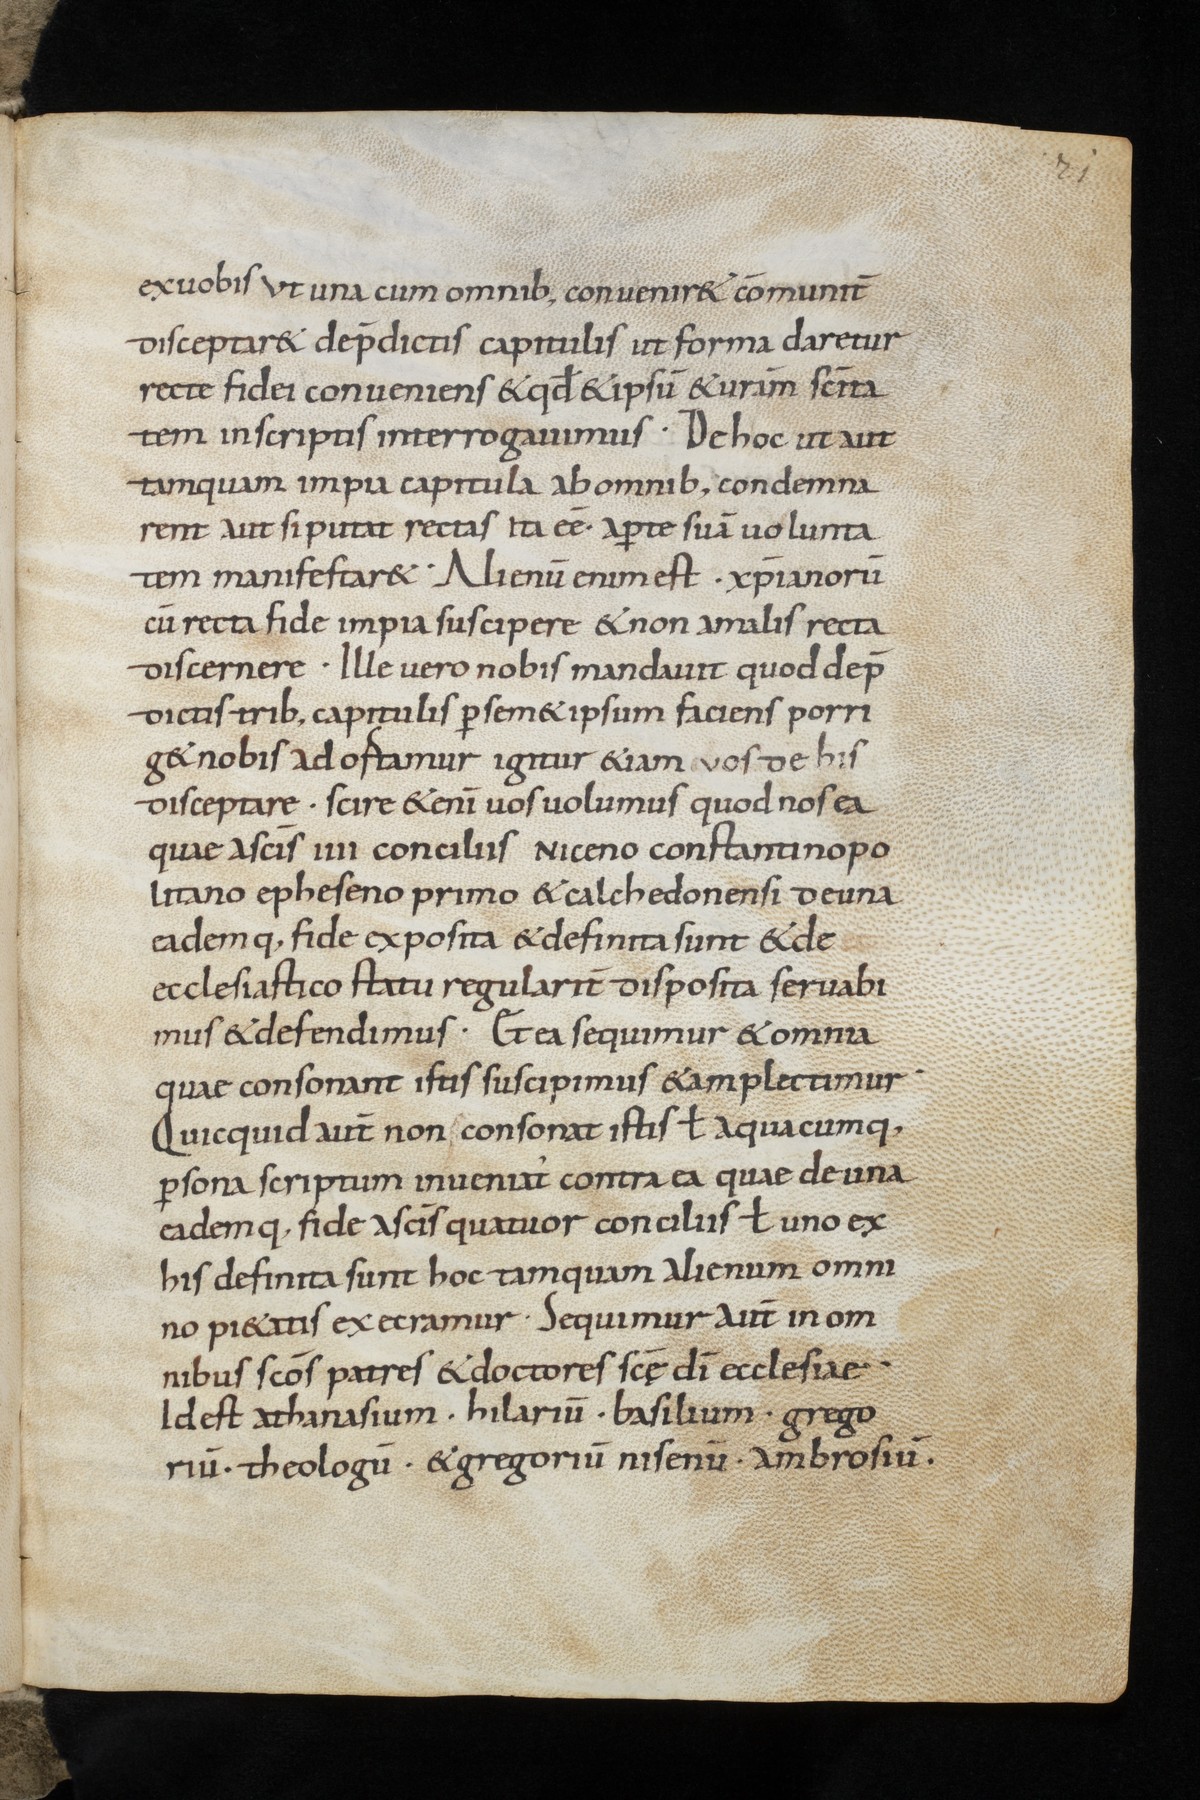 21
ex uobis vt una cum omnib, conuenir& cōmunit̄
disceptar& dep̄dictis capitulis ut forma daretur
recte fidei conueniens & qđ & ipsū & uram̄ scīta
tem in scriptis interrogauimus · De hoc ut aut
tamquam impia capitula ab omnib, condemna
rent aut si putat rectas ita eē· aꝑte suā uolunta
tem manifestar& · Alienū enim est · xp̄ianorū
cū recta fide impia suscipere & non amalis recta
discernere · Ille vero nobis mandauit quod dep̄
dictis trib, capitulis ꝑsem&ipsum faciens porri
g& nobis adoſtamur igitur &iam vos de his
disceptare · scire &eni uos uolumus quod nos ea
quae ascīs iiii conciliis niceno constantinopo
litano epheseno primo & calchedonensi de una
eadem q, fide exposita & definita sunt & de
ecclesiastico statu regularit̄ disposita servabi
mus & defendimus · Et ea sequimur & omnia
quae consonant istis suscipimus & amplectimur ·
Quicquid aut̄ non consonat istis ƚ aquacumq,
ꝑsona scriptum inueniat᾽ contra ea quae de una
eadem q, fide ascīs quatuor conciliis ƚ uno ex
his definita sunt hoc tamquam alienum omni
no pi&atis execramur · Sequimur aut̄ in om
nibus scōs patres & doctores scę̄ dī ecclesiae ·
Id est athanasium · hilariū · basilium · grego
riū · theologū · & gregoriū nisenū · ambrosiū .